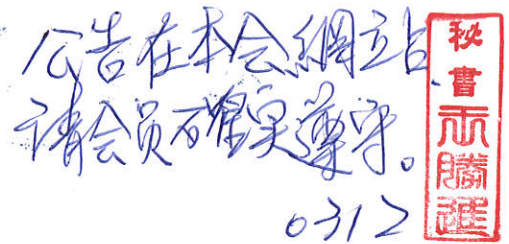 公告在本会網站
请会员確实遵守。
0312
秘書
勝進